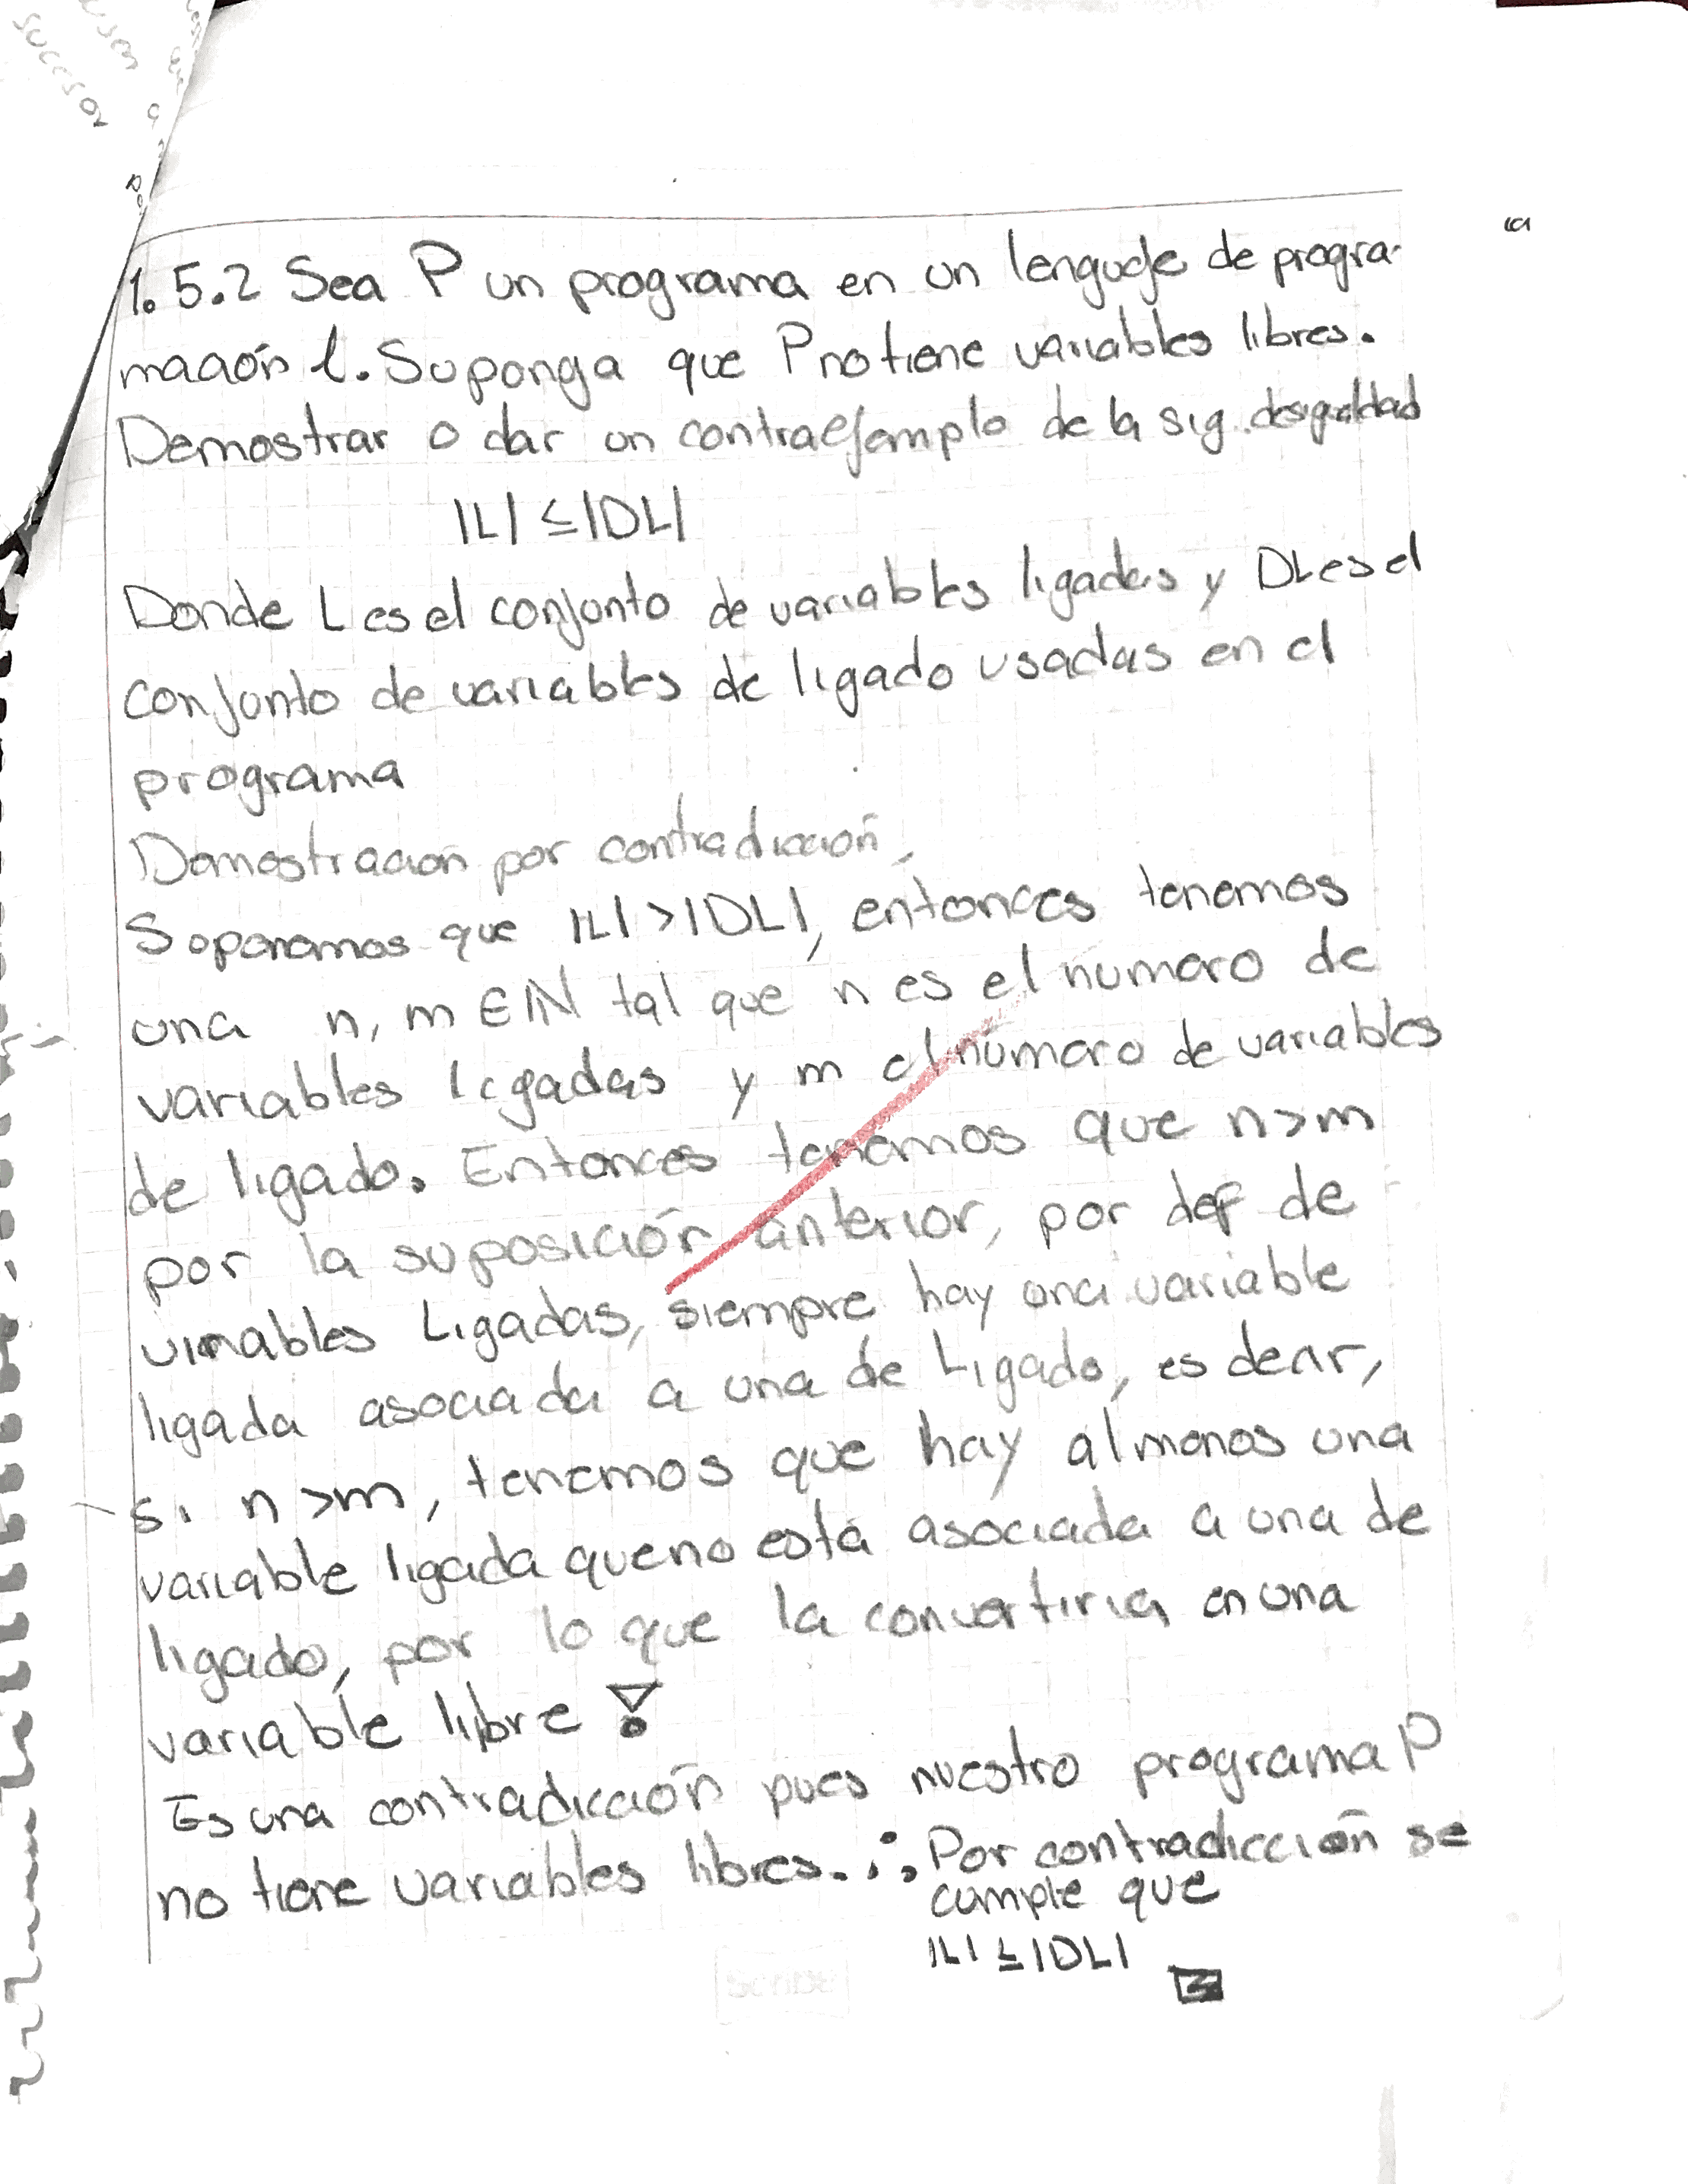 sucesor
1.5.2 Sea P un programa en un lenguaje de progra-
mación l. Suponga que P no tiene variables libres.
Demostrar o dar un contraejemplo de la sig. desigualdad
|L| ≤ |DL|
Donde L es el conjunto de variables ligadas y DL es el
conjunto de variables de ligado usadas en el
programa
Demostración por contradicción,
Suponemos que |L| > |DL|, entonces tenemos
una n, m ∈ ℕ tal que n es el numero de
variables ligadas y m el número de variables
de ligado. Entonces tenemos que n>m
por la suposición anterior, por def de
variables Ligadas, siempre hay una variable
ligada asociada a una de Ligado, es decir,
si n>m, tenemos que hay al menos una
variable ligada que no está asociada a una de
ligado, por lo que la convertiria en una
variable libre
Es una contradicción pues nuestro programa P
no tiene variables libres. ∴ Por contradicción se
cumple que
|L| ≤ |DL|